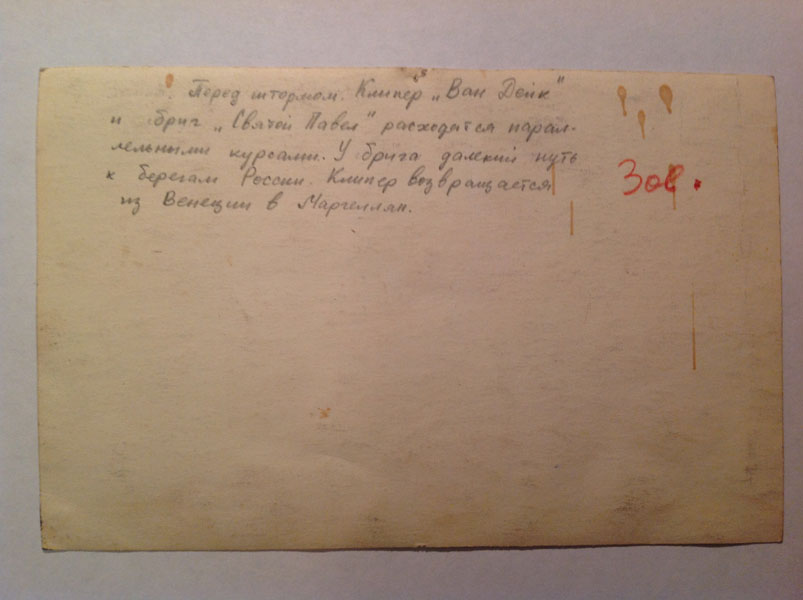 Перед штормом. Клипер „Ван Дейк"
и бриг „Святой Павел" расходятся парал-
лельными курсами. У брига далекий путь
к берегам России. Клипер возвращается
из Венеции в Маргеллян.